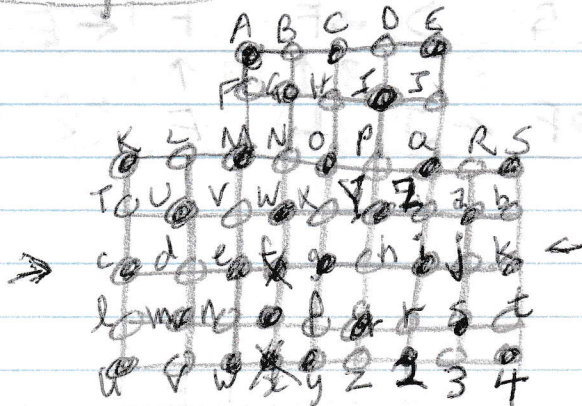 A B C D E
F G H I J
K L M N O P Q R S
T U V W X Y Z a b
c d e f g h i j k
l m n p q r s t
u v w x y z 1 3 4